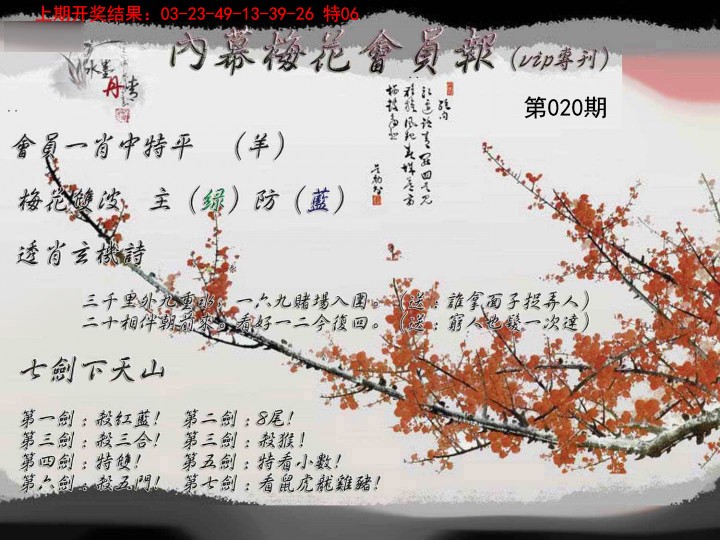 上期开奖结果：03-23-49-13-39-26 特06
內幕梅花會員報(vip專刊)
水墨
丹青
第020期
會員一肖中特平 （羊）
梅花雙波 主（绿）防（藍）
透肖玄機詩
三千里外九重水，一六九賭場入圍。（送：誰拿面子捉弄人）
二十相伴朝前來。看好一二今復回。（送：窮人也發一次達）
七劍下天山
第一劍：殺紅藍！ 第二劍：8尾！
第三劍：殺三合！ 第三劍：殺猴！
第四劍：特雙！ 第五劍：特看小數！
第六劍：殺五門！ 第七劍：看鼠虎龍雞豬！